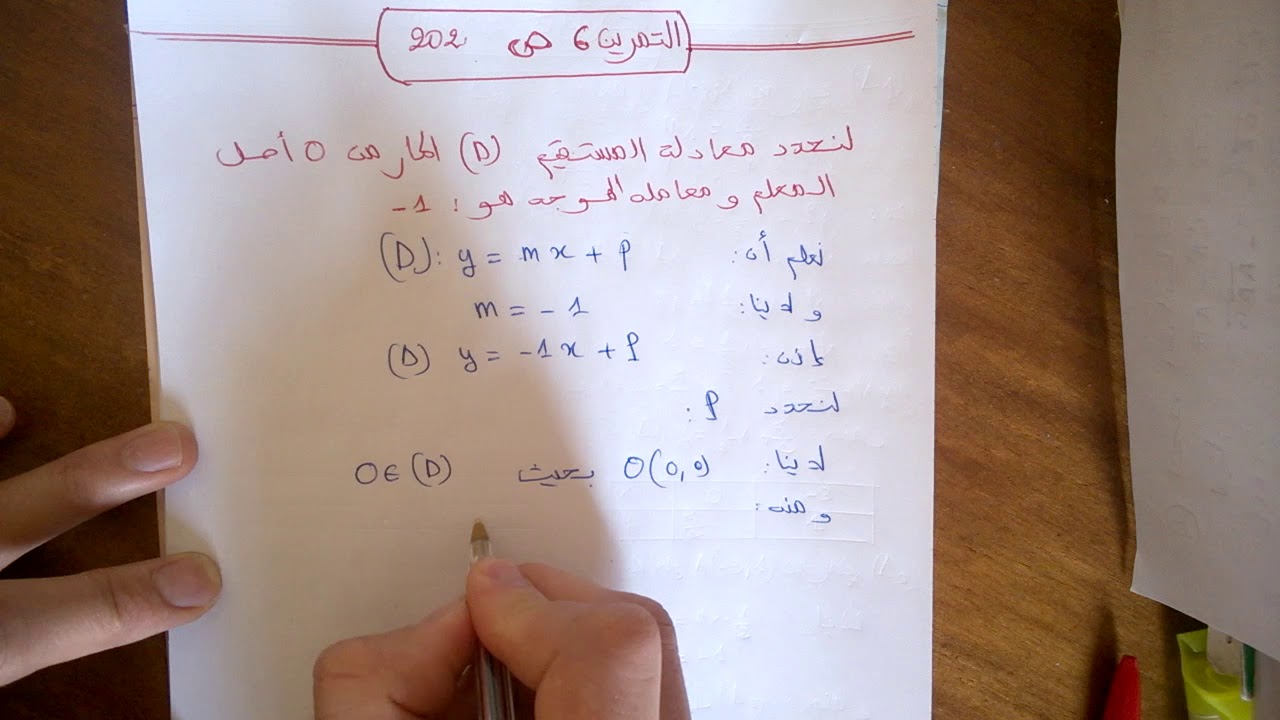 التمرين 6 ص 202
لنحدد معادلة المستقيم (D) المار من O أصل
المعلم و معامله الموجه هو : 1-
نعلم أن: (D): y = mx + p
و لدينا: m = -1
إذن: (D) y = -1x + p
لنحدد p :
لدينا: O(0,0) بحيث O∈(D)
و منه :